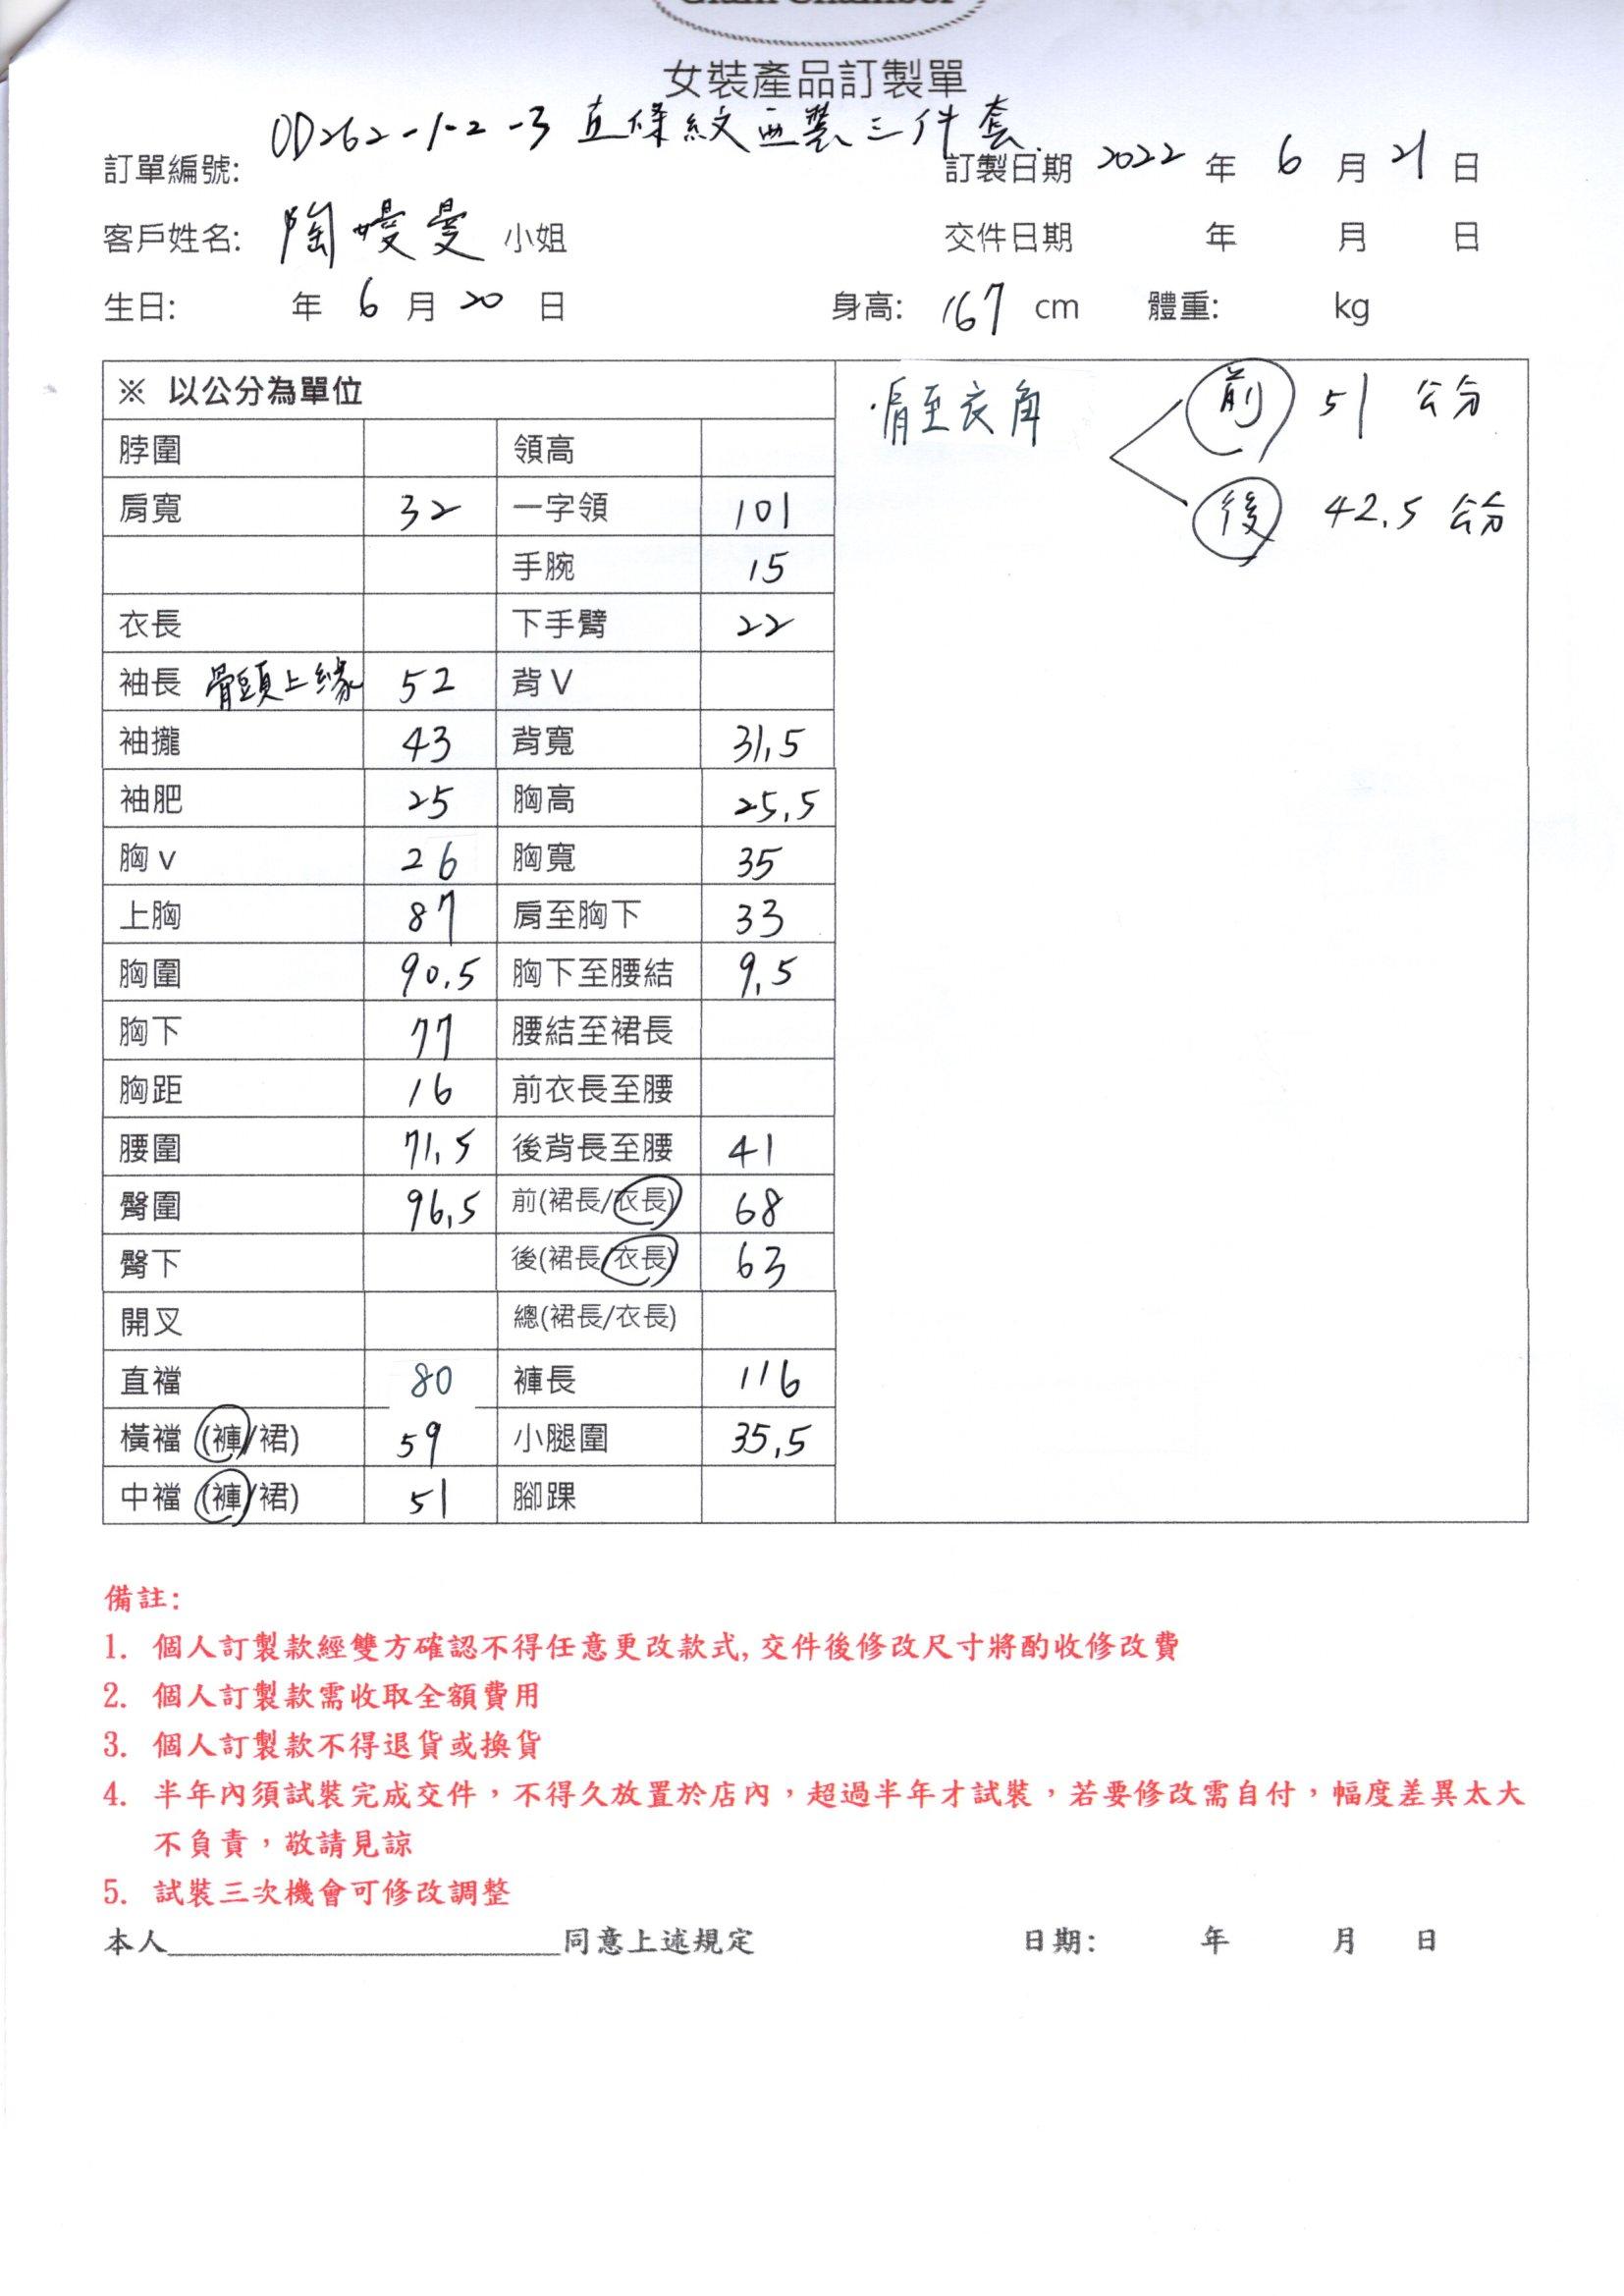 Glam Chamber
女裝產品訂製單
訂單編號: OD262-1-2-3 直條紋西裝三件套. 訂製日期 2022 年 6 月 21 日
客戶姓名: 陶嫚曼 小姐 交件日期 年 月 日
生日: 年 6 月 20 日 身高: 167 cm 體重: kg
※ 以公分為單位
·肩至衣角 前 51 公分
後 42.5 公分
脖圍 領高
肩寬 32 一字領 101
手腕 15
衣長 下手臂 22
袖長 骨頭上緣 52 背V
袖攏 43 背寬 31.5
袖肥 25 胸高 25.5
胸v 26 胸寬 35
上胸 87 肩至胸下 33
胸圍 90.5 胸下至腰結 9.5
胸下 77 腰結至裙長
胸距 16 前衣長至腰
腰圍 71.5 後背長至腰 41
臀圍 96.5 前(裙長/衣長) 68
臀下 後(裙長/衣長) 63
開叉 總(裙長/衣長)
直襠 80 褲長 116
橫襠 (褲/裙) 59 小腿圍 35.5
中襠 (褲/裙) 51 腳踝
備註:
1. 個人訂製款經雙方確認不得任意更改款式, 交件後修改尺寸將酌收修改費
2. 個人訂製款需收取全額費用
3. 個人訂製款不得退貨或換貨
4. 半年內須試裝完成交件，不得久放置於店內，超過半年才試裝，若要修改需自付，幅度差異太大
不負責，敬請見諒
5. 試裝三次機會可修改調整
本人________________________同意上述規定 日期: 年 月 日